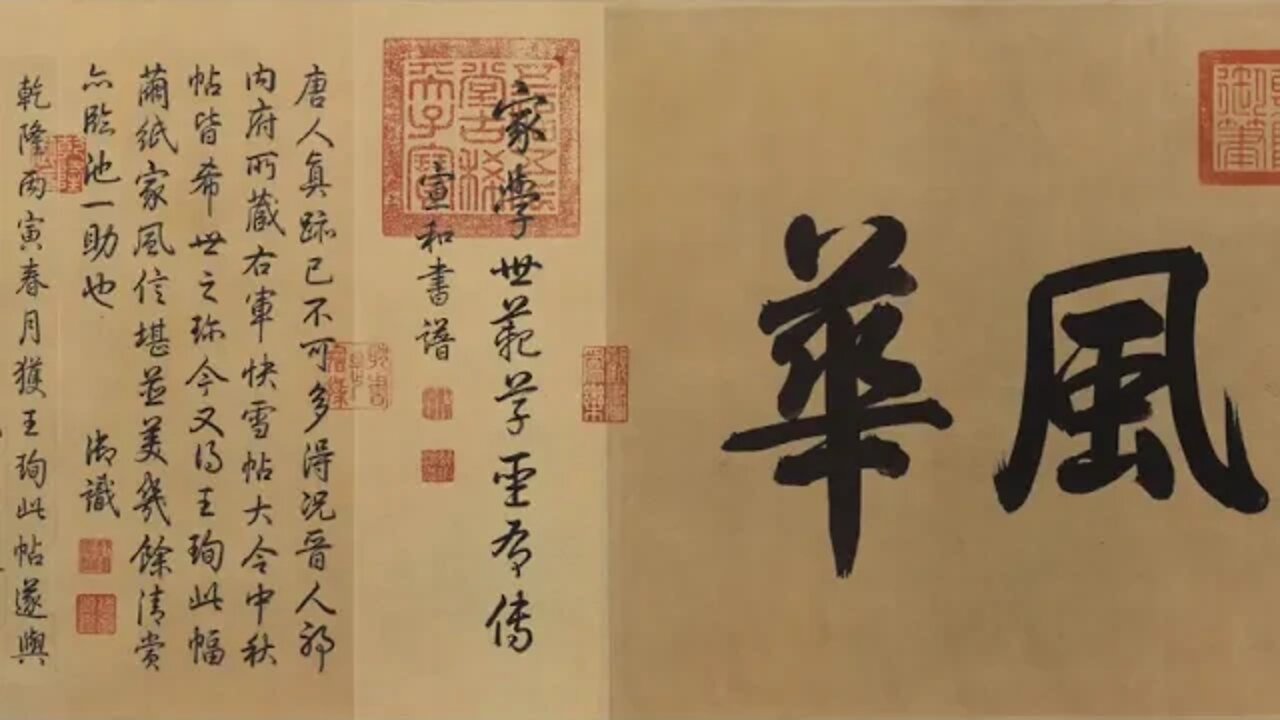 御筆
風華
五福五代
堂古稀
天子寶
家學世範草聖有傳
宣和書譜
唐人真跡已不可多得況晉人耶
內府所藏右軍快雪帖大令中秋
帖皆希世之珍今又得王珣此幅
繭紙家風信堪並美幾餘清賞
亦臨池一助也 御識
乾隆丙寅春月獲王珣此帖遂與